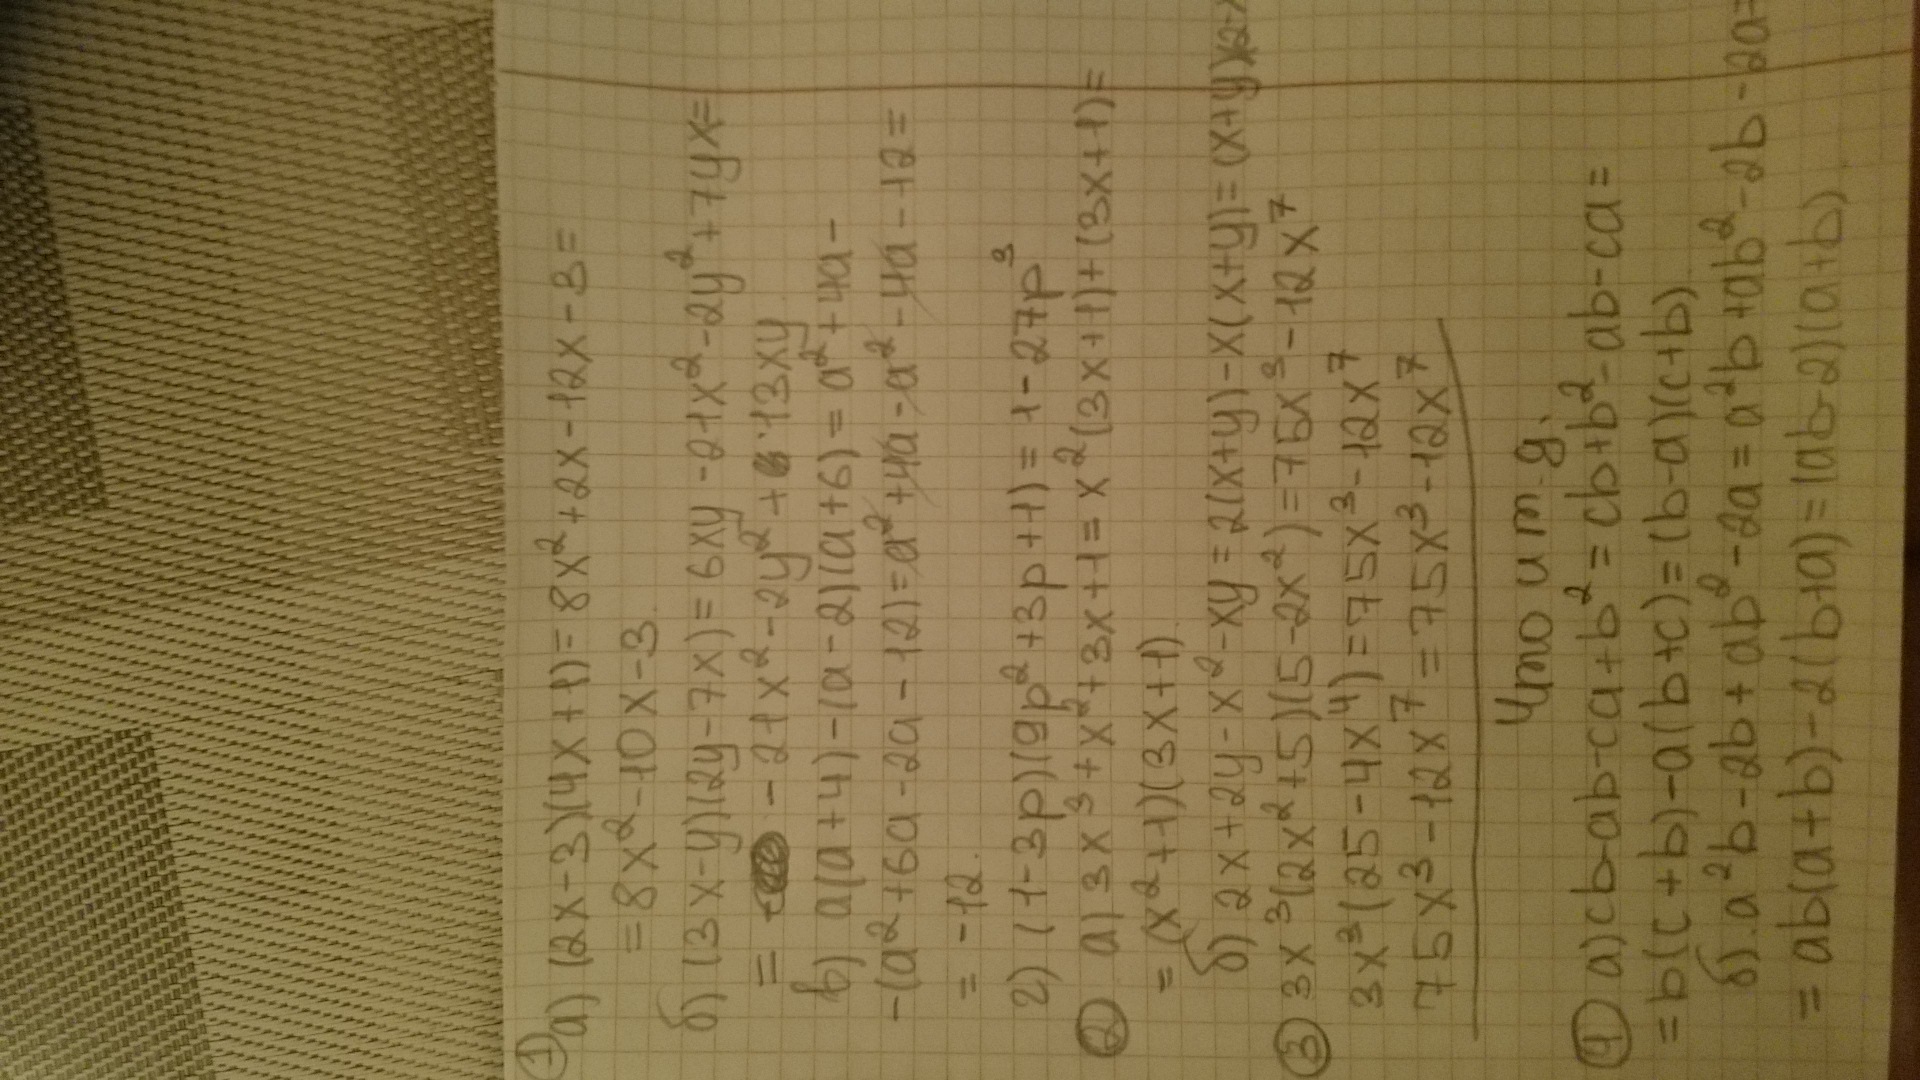 ① а) (2x-3)(4x+1)=8x²+2x-12x-3=
=8x²-10x-3.
б) (3x-y)(2y-7x)=6xy-21x²-2y²+7yx=
= -21x²-2y²+13xy
в) a(a+4)-(a-2)(a+6)=a²+4a-
-(a²+6a-2a-12)=a²+4a-a²-4a-12=
=-12.
г) (1-3p)(9p²+3p+1)=1-27p³
② а) 3x³+x²+3x+1=x²(3x+1)+(3x+1)=
=(x²+1)(3x+1).
б) 2x+2y-x²-xy=2(x+y)-x(x+y)=(x+y)(2-x
③ 3x³(2x²+5)(5-2x²)=75x³-12x⁷
3x³(25-4x⁴)=75x³-12x⁷
75x³-12x⁷=75x³-12x⁷
Что и т.д.
④ а) cb-ab-ca+b²=cb+b²-ab-ca=
=b(c+b)-a(b+c)=(b-a)(c+b)
б). a²b-2b+ab²-2a=a²b+ab²-2b-2a=
=ab(a+b)-2(b+a)=(ab-2)(a+b).